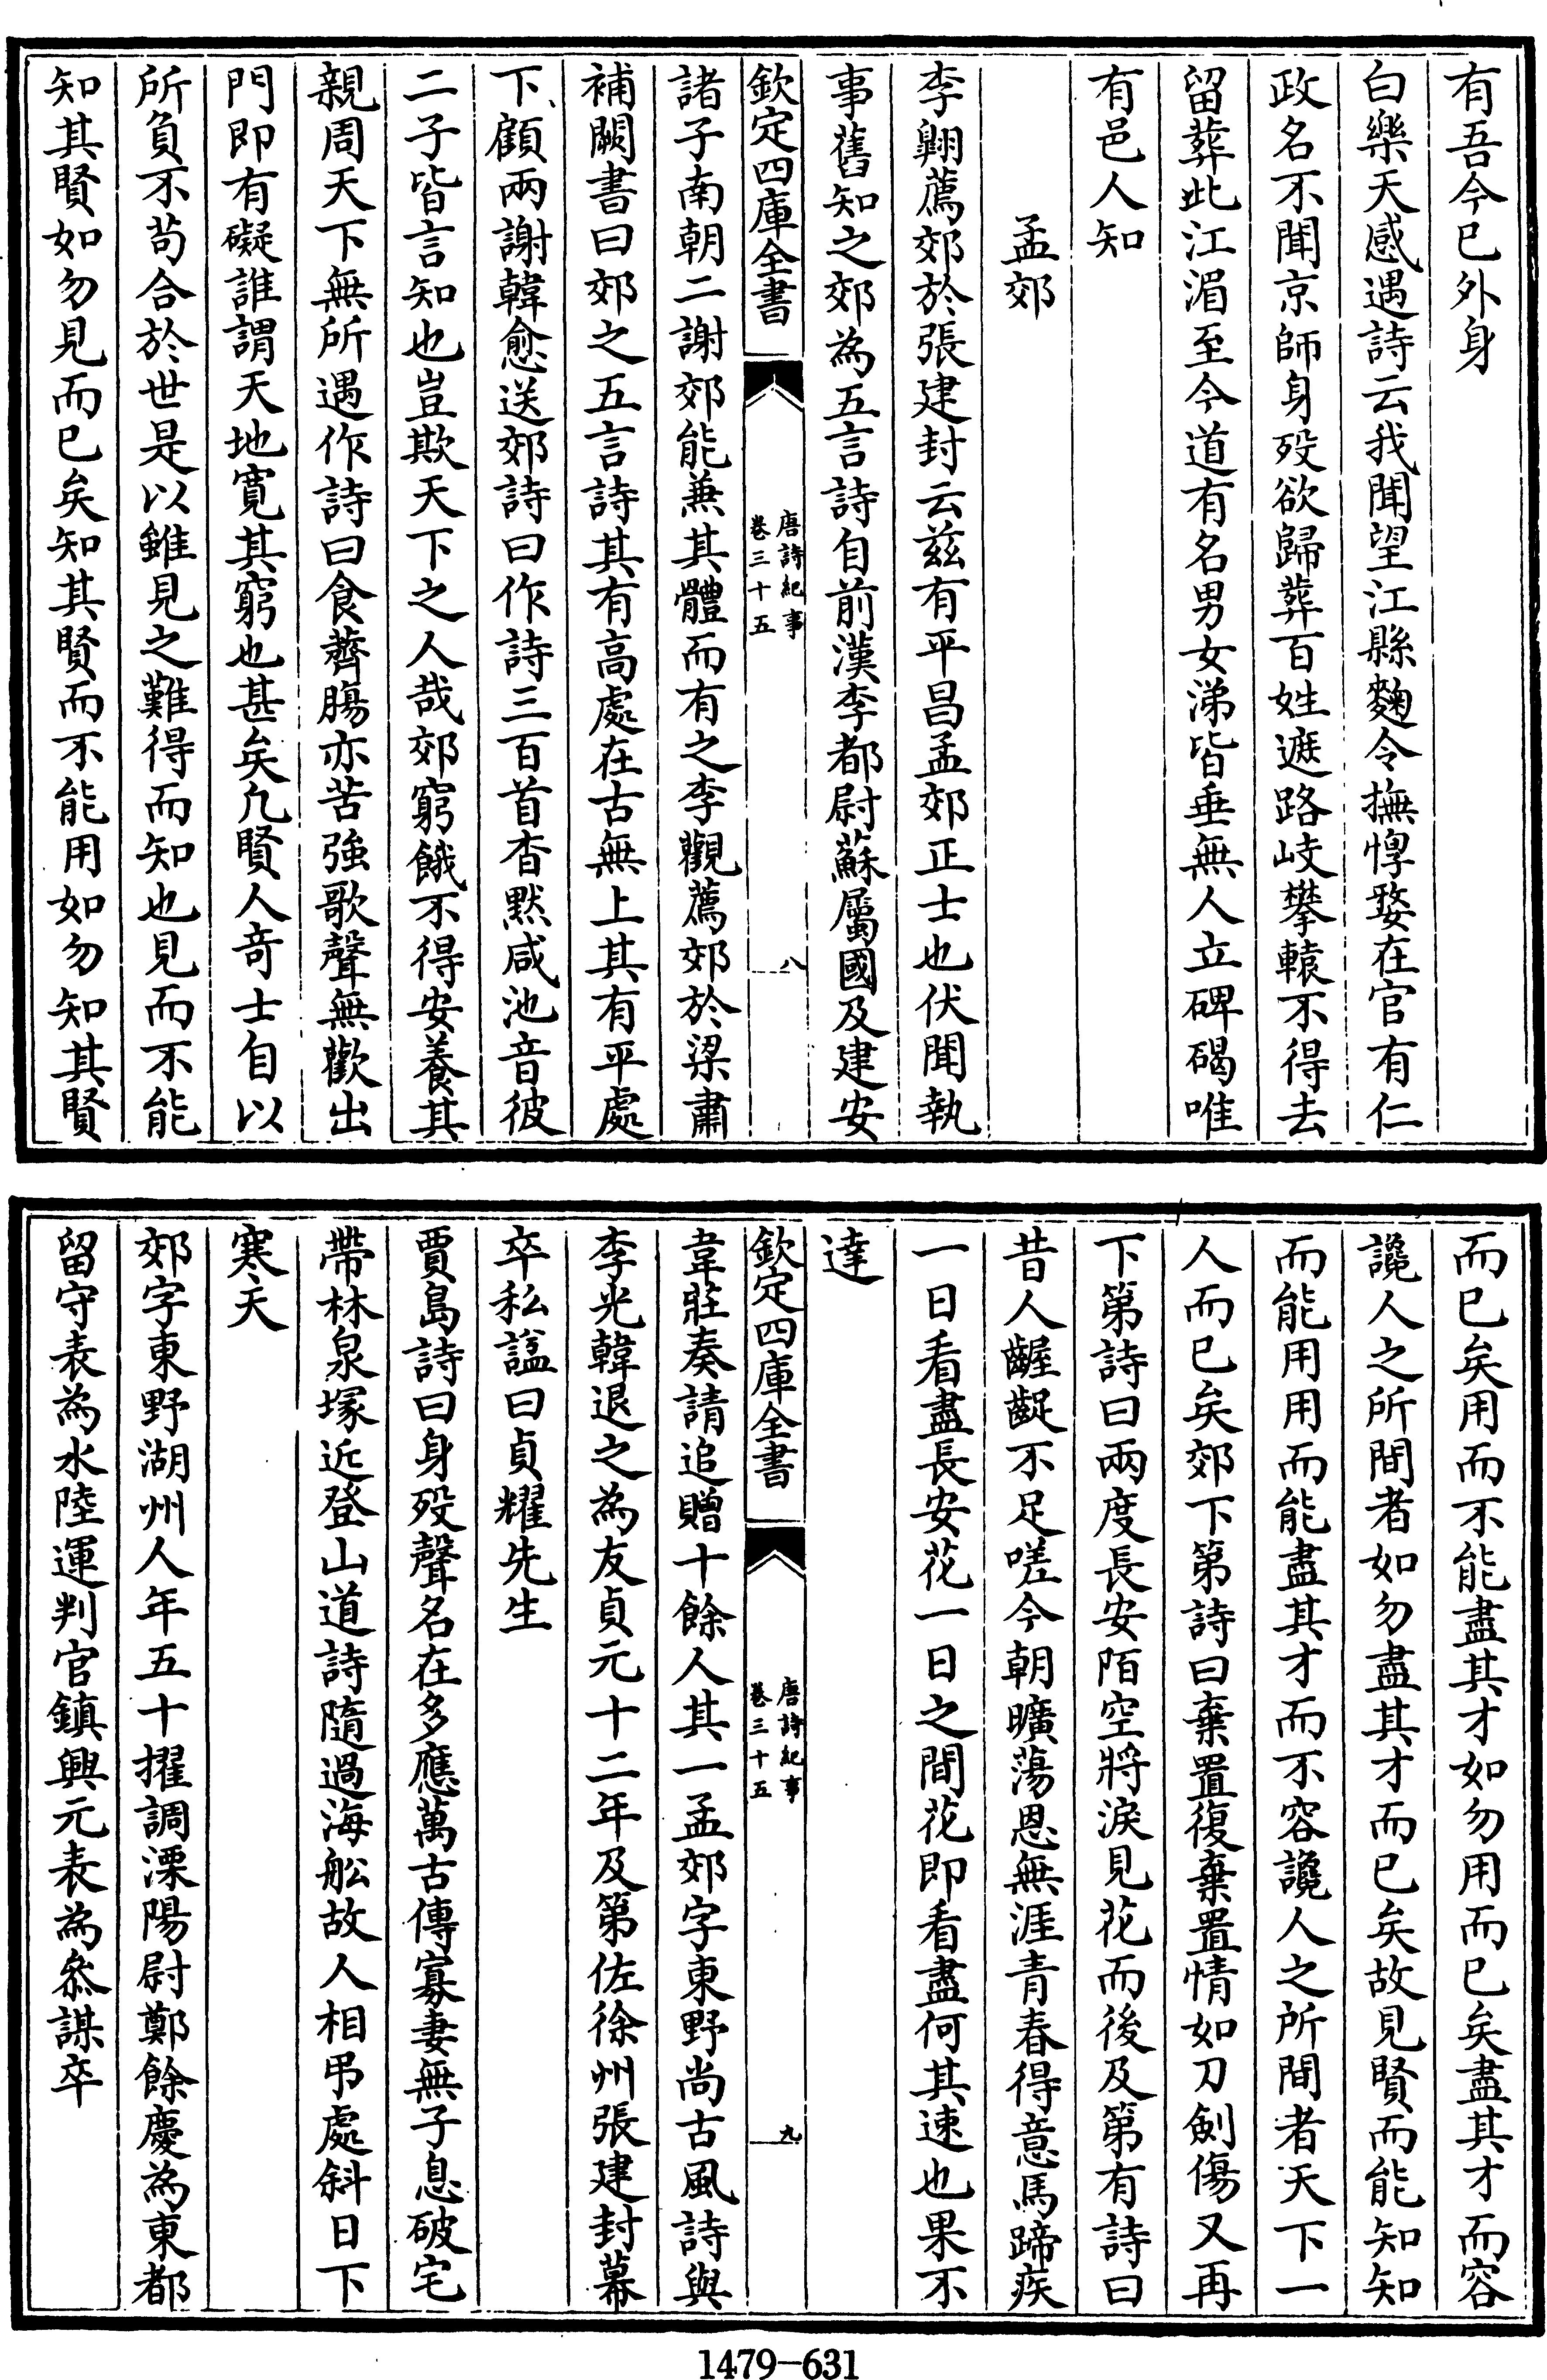 有吾今已外身
白樂天感遇詩云我聞望江縣麴令撫惸嫠在官有仁
政名不聞京師身歿欲歸葬百姓遮路岐攀轅不得去
留葬此江湄至今道有名男女涕皆垂無人立碑碣唯
有邑人知
孟郊
李翺薦郊於張建封云兹有平昌孟郊正士也伏聞執
事舊知之郊為五言詩自前漢李都尉蘇屬國及建安
欽定四庫全書
唐詩紀事
卷三十五
八
諸子南朝二謝郊能兼其體而有之李觀薦郊於梁肅
補闕書曰郊之五言詩其有高處在古無上其有平處
下顧兩謝韓愈送郊詩曰作詩三百首杳黙咸池音彼
二子皆言知也豈欺天下之人哉郊窮餓不得安養其
親周天下無所遇作詩曰食薺腸亦苦強歌聲無歡出
門即有礙誰謂天地寛其窮也甚矣凡賢人奇士自以
所負不茍合於世是以雖見之難得而知也見而不能
知其賢如勿見而已矣知其賢而不能用如勿知其賢
而已矣用而不能盡其才如勿用而已矣盡其才而容
讒人之所間者如勿盡其才而已矣故見賢而能知知
而能用用而能盡其才而不容讒人之所間者天下一
人而已矣郊下第詩曰棄置復棄置情如刀劍傷又再
下第詩曰兩度長安陌空將淚見花而後及第有詩曰
昔人齷齪不足嗟今朝曠蕩恩無涯青春得意馬蹄疾
一日看盡長安花一日之間花即看盡何其速也果不
達
欽定四庫全書
唐詩紀事
卷三十五
九
韋莊奏請追贈十餘人其一孟郊字東野尚古風詩與
李光韓退之為友貞元十二年及第佐徐州張建封幕
卒私諡曰貞耀先生
賈島詩曰身歿聲名在多應萬古傳寡妻無子息破宅
帶林泉塚近登山道詩隨過海舩故人相弔處斜日下
寒天
郊字東野湖州人年五十擢調溧陽尉鄭餘慶為東都
留守表為水陸運判官鎮興元表為叅謀卒
1479-631